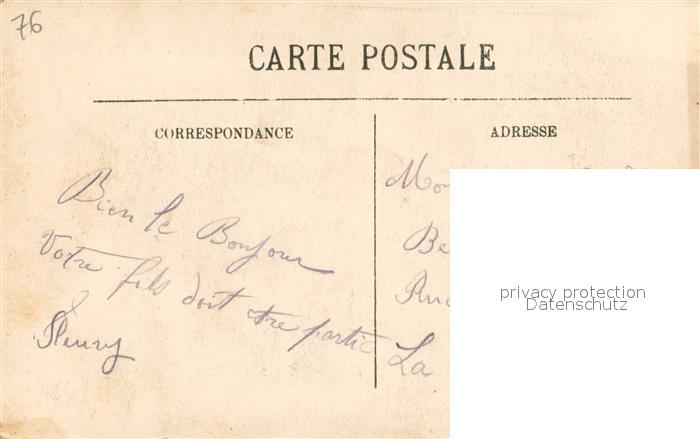 76
CARTE POSTALE
CORRESPONDANCE
ADRESSE
Bien le Bonjour
Votre fils doit etre partie
Fleury
Mon
Be
Rue
La
privacy protection
Datenschutz